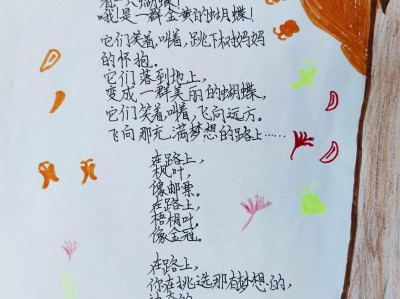 看一只蝴蝶!
哦是一群金黄的蝴蝶!
它们笑着,叫着,跳下树妈妈
的怀抱。
它们落到地上,
变成一群美丽的蝴蝶,
它们笑着,叫着,飞向远方。
飞向那充满梦想的路上……
在路上,
枫叶,
像邮票。
在路上,
梧桐叶,
像金冠。
在路上,
你在挑选那有梦想的,